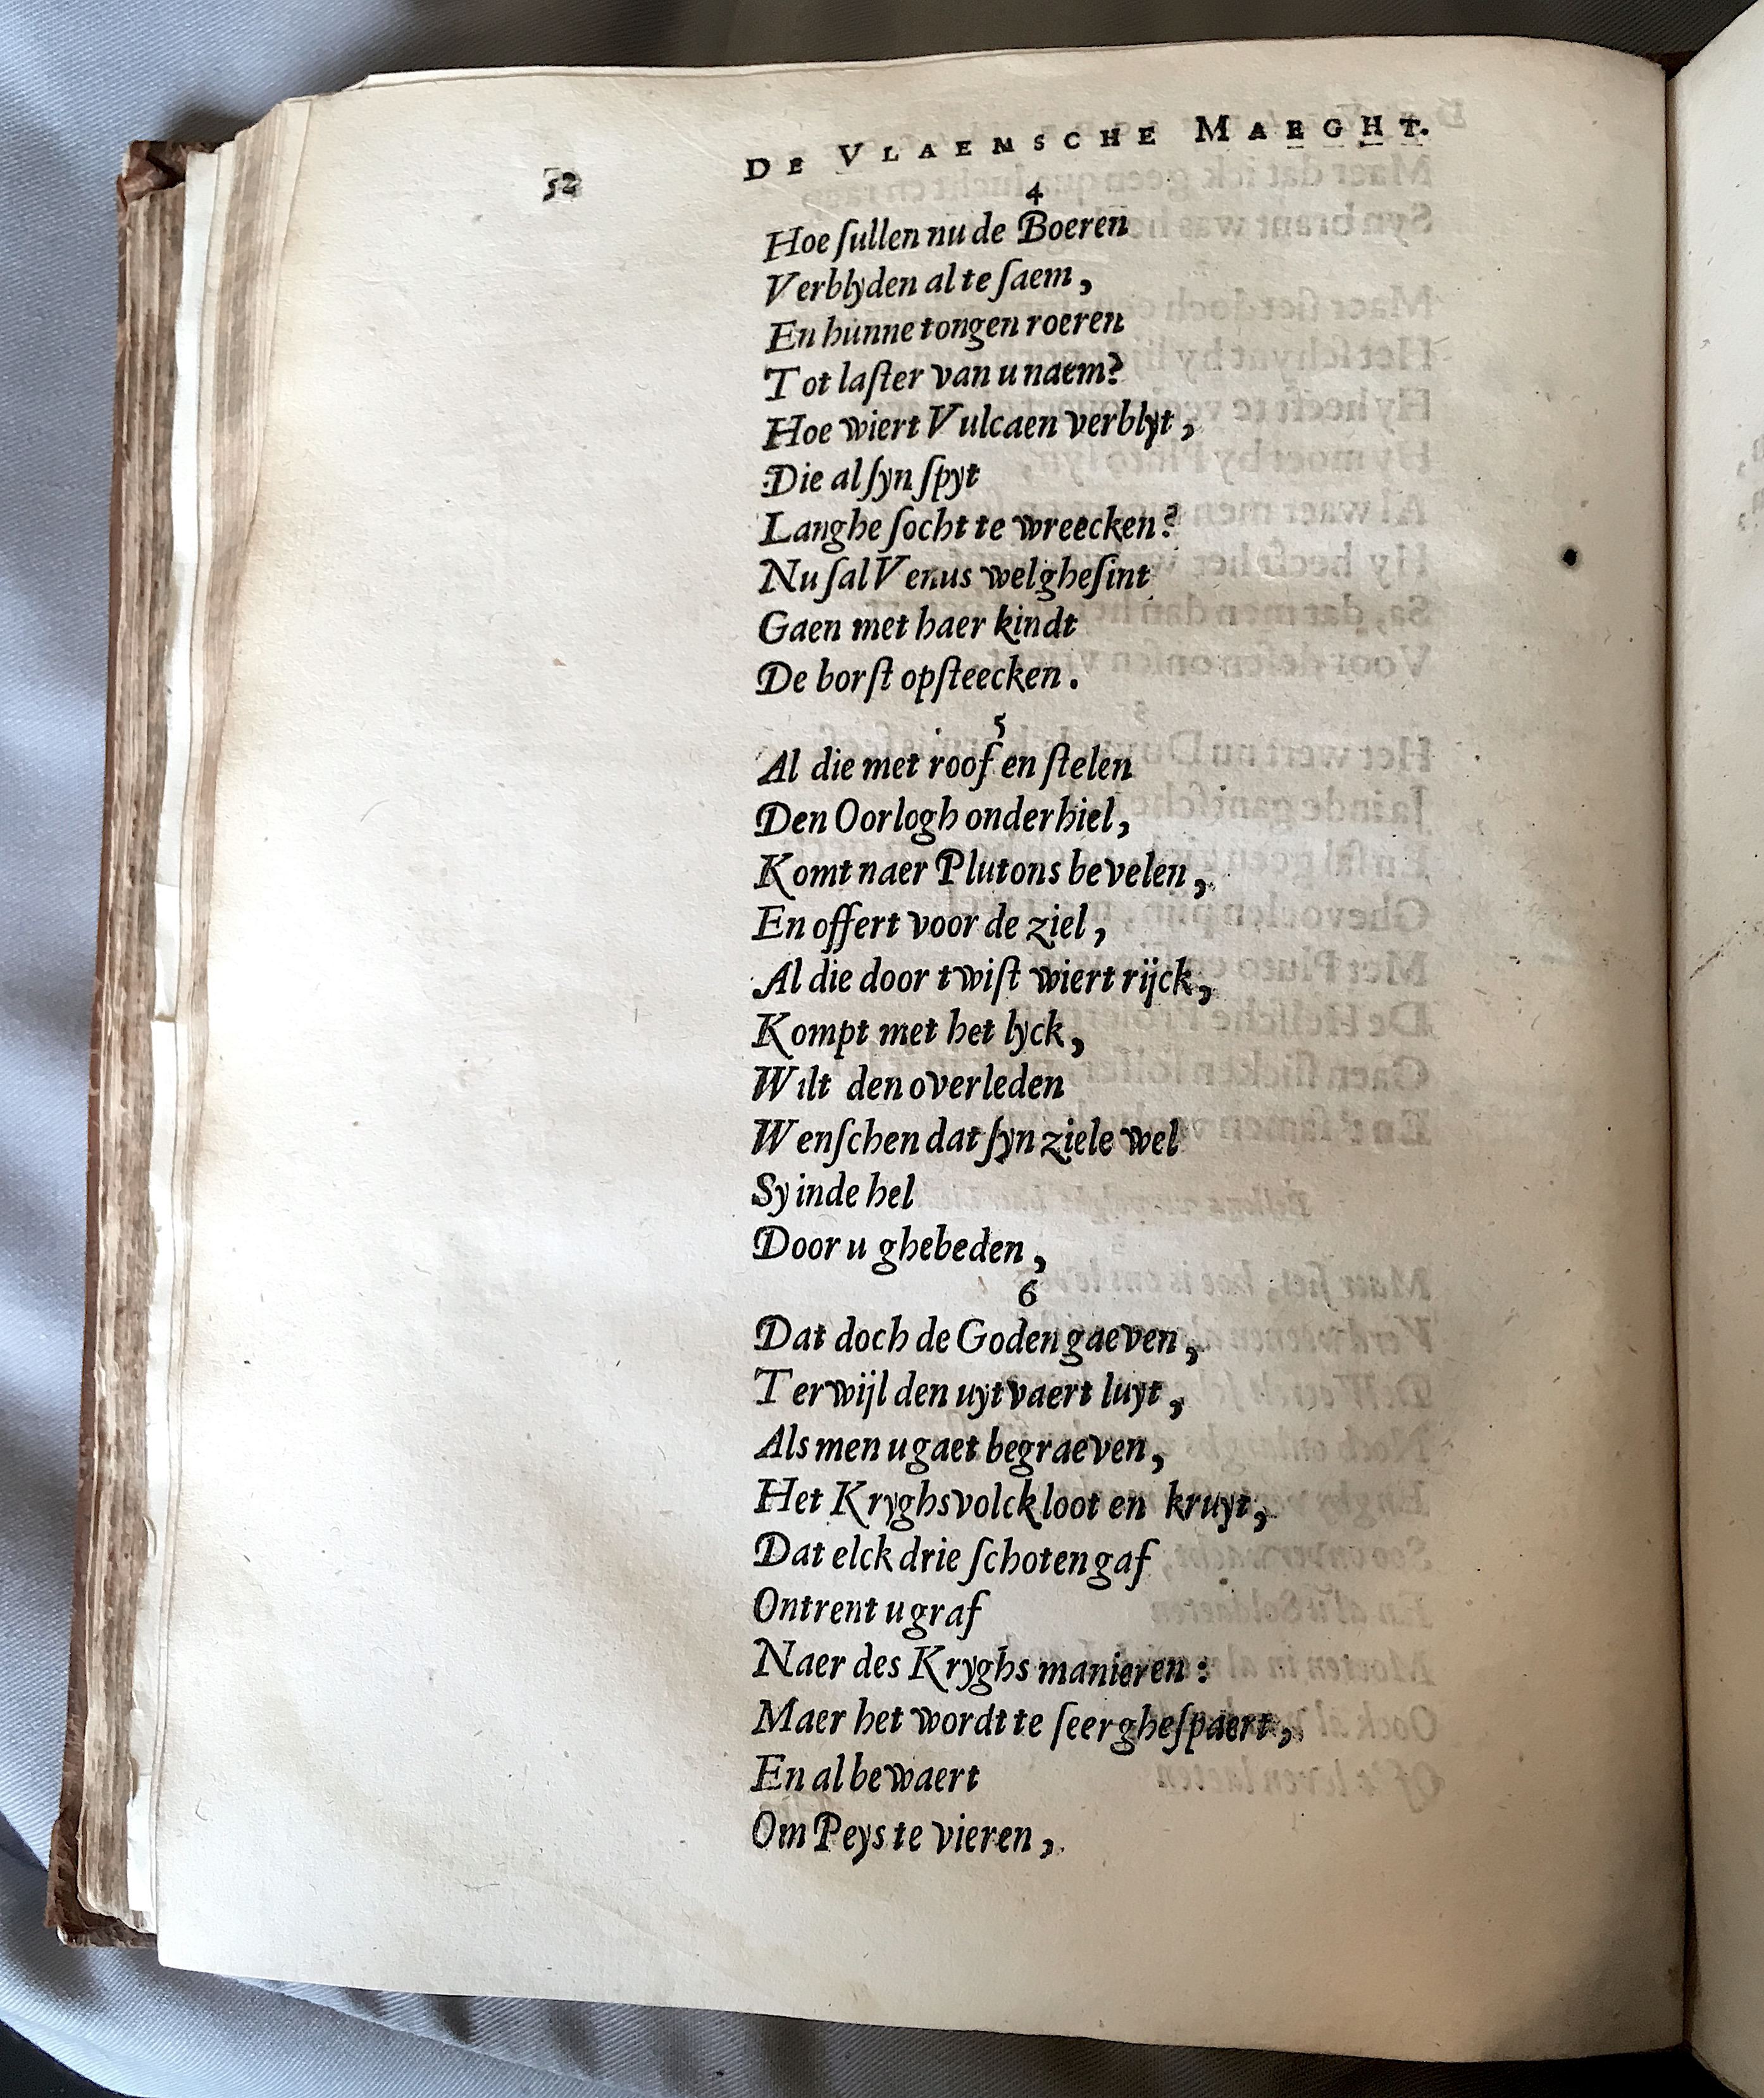 52 DE VLAEMSCHE MAEGHT.
4
Hoe ſullen nu de Boeren
Verblyden al te ſaem,
En hunne tongen roeren
Tot laſter van u naem?
Hoe wiert Vulcaen verblyt,
Die al ſyn ſpyt
Langhe ſocht te wreecken?
Nu ſal Venus wel gheſint
Gaen met haer kindt
De borſt opſteecken.
5
Al die met roof en ſtelen
Den Oorlogh onderhiel,
Komt naer Plutons bevelen,
En offert voor de ziel,
Al die door twiſt wiert rijck,
Kompt met het lyck,
Wilt den overleden
Wenſchen dat ſyn ziele wel
Sy inde hel
Door u ghebeden,
6
Dat doch de Goden gaeven,
Terwijl den uytvaert luyt,
Als men u gaet begraeven,
Het Kryghsvolck loot en kruyt,
Dat elck drie ſchoten gaf
Ontrent u graf
Naer des Kryghs manieren:
Maer het wordt te ſeer gheſpaert,
En al bewaert
Om Peys te vieren,